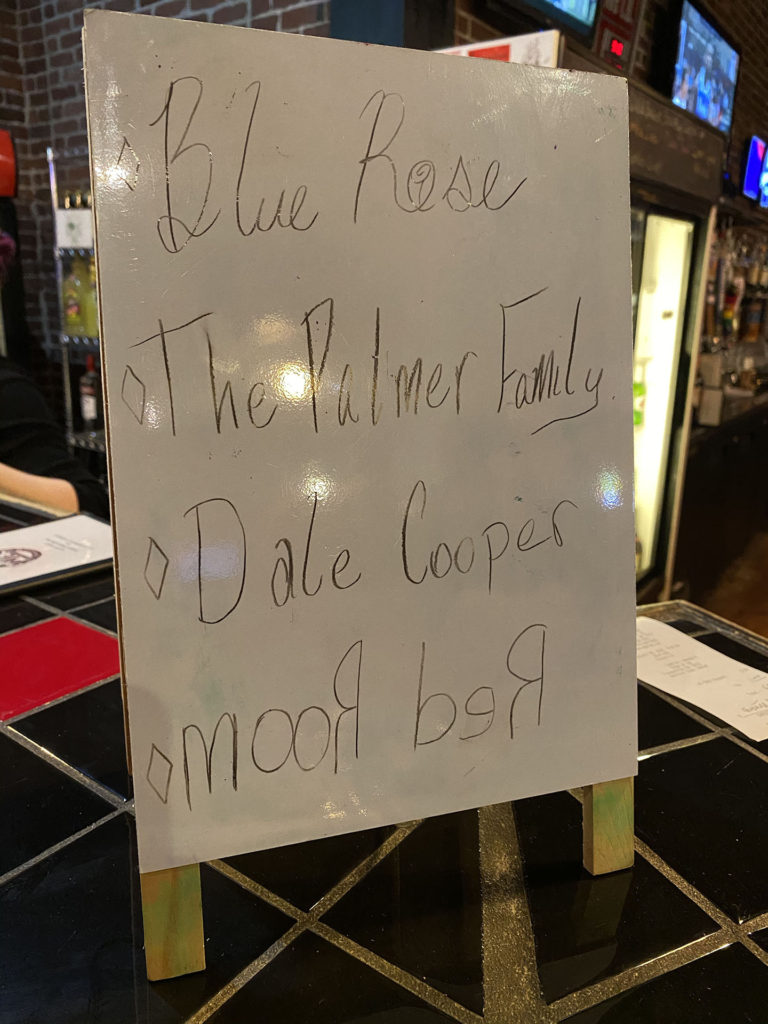 ◇ Blue Rose
◇ The Palmer Family
◇ Dale Cooper
◇ mooЯ bɘЯ